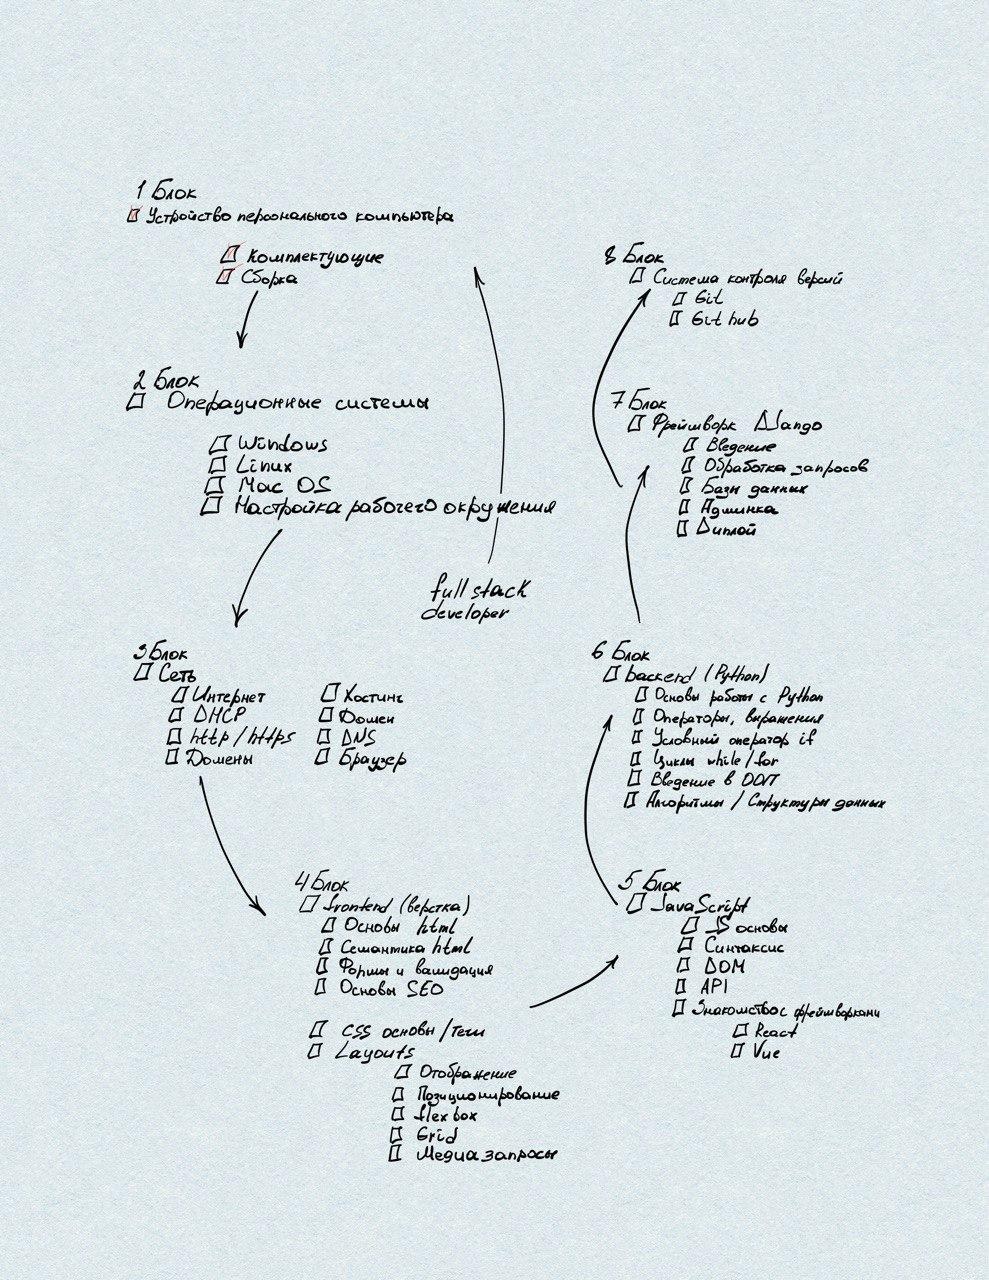 1 Блок
Устройство персонального компьютера
Комплектующие
Сборка
2 Блок
Операционные системы
Windows
Linux
Mac OS
Настройка рабочего окружения
full stack
developer
3 Блок
Сеть
Интернет
DHCP
http / https
Домены
Хостинг
Домен
DNS
Браузер
4 Блок
frontend (верстка)
Основы html
Семантика html
Формы и валидация
Основы SEO
CSS основы / Теги
Layouts
Отображение
Позиционирование
flex box
Grid
Медиа запросы
5 Блок
JavaScript
JS основы
Синтаксис
DOM
API
Знакомство с фреймворками
React
Vue
6 Блок
backend (Python)
Основы работы с Python
Операторы, выражения
Условный оператор if
Циклы while / for
Введение в ООП
Алгоритмы / Структуры данных
7 Блок
Фреймворк Django
Введение
Обработка запросов
Базы данных
Админка
Диплой
8 Блок
Система контроля версий
Git
Git hub